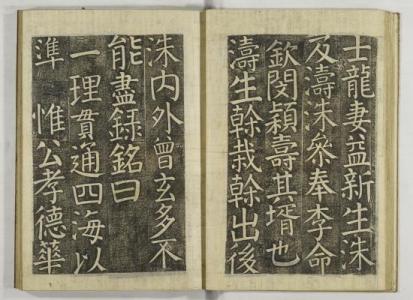 士龍妻益新生洙
及濤洙參奉李命
欽閔穎壽其壻也
濤生榦栽榦出後
洙內外曾玄多不
能盡錄銘曰
一理貫通四海以
準 惟公孝德華